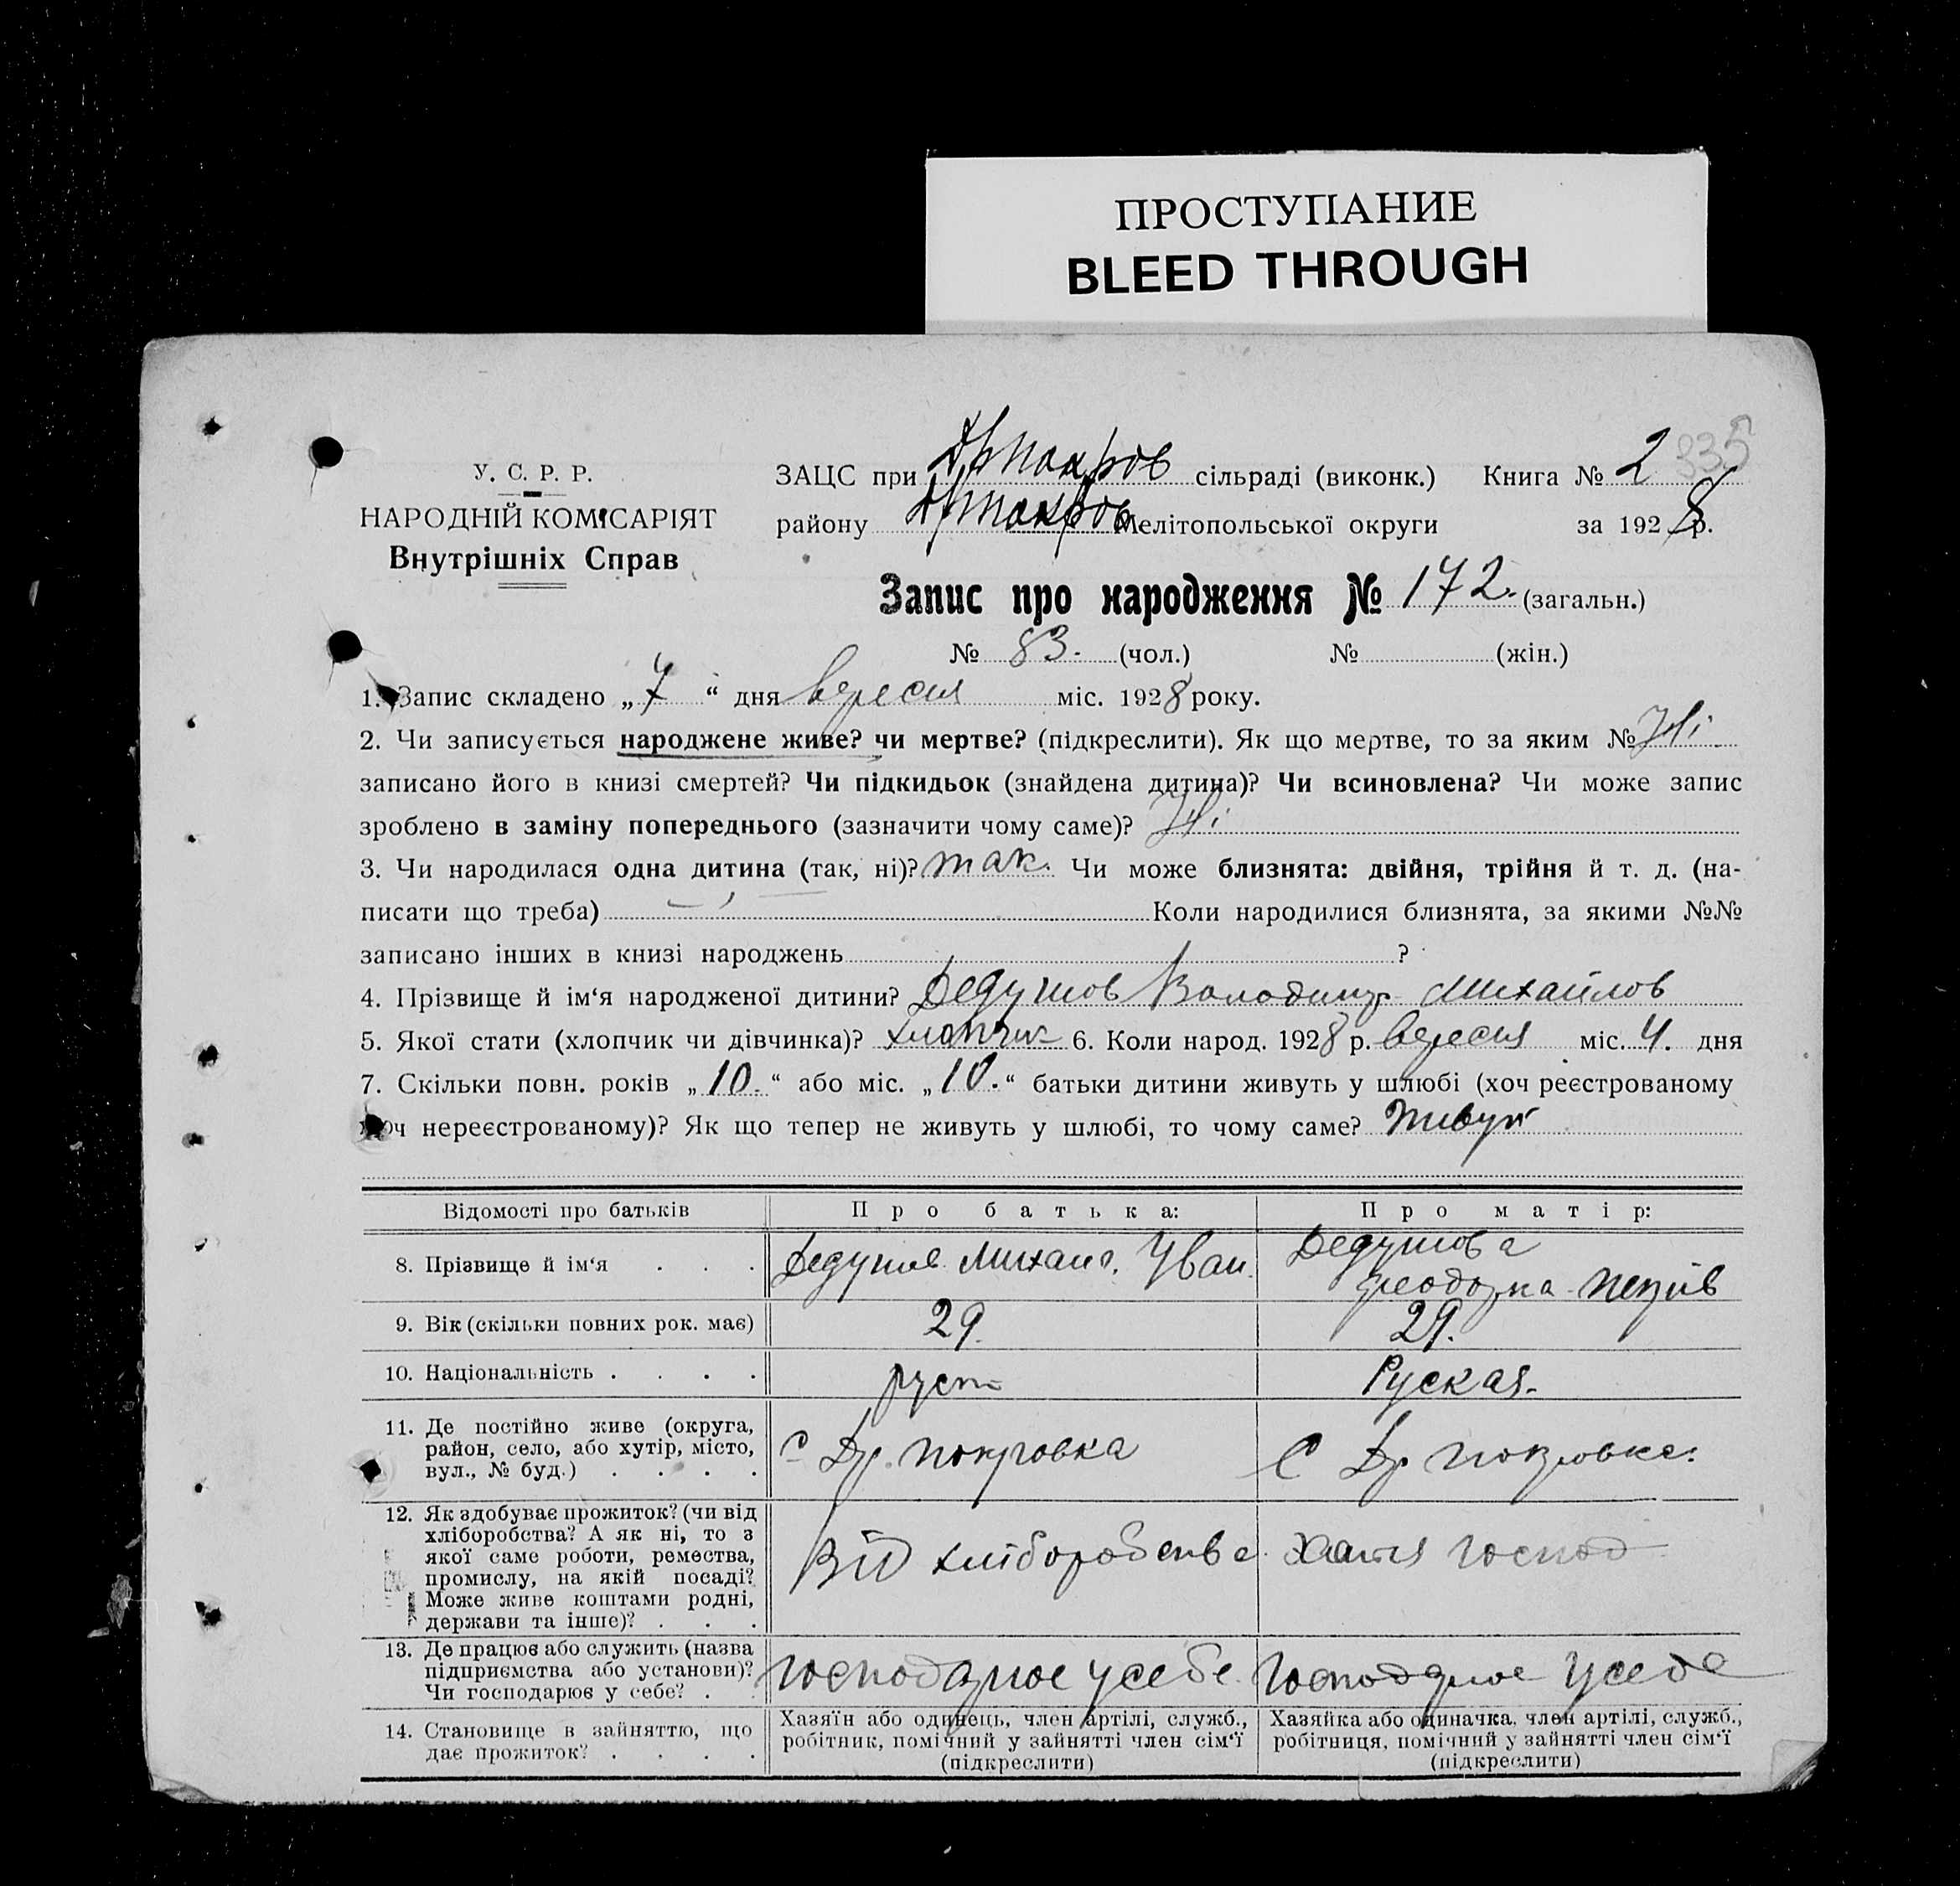 ПРОСТУПАНИЕ
BLEED THROUGH
335
У. С. Р. Р.
НАРОДНІЙ КОМІСАРІЯТ
Внутрішніх Справ
ЗАЦС при Др покров сільраді (виконк.) Книга № 2
району Др покров Мелітопольської округи за 1928 р.
Запис про народження № 172. (загальн.)
№ 83. (чол.) № (жін.)
1. Запис складено „7“ дня вересня міс. 1928 року.
2. Чи записується народжене живе? чи мертве? (підкреслити). Як що мертве, то за яким № Ні
записано його в книзі смертей? Чи підкидьок (знайдена дитина)? Чи всиновлена? Чи може запис
зроблено в заміну попереднього (зазначити чому саме)? Ні
3. Чи народилася одна дитина (так, ні)? так. Чи може близнята: двійня, трійня й т. д. (на-
писати що треба) Коли народилися близнята, за якими №№
записано інших в книзі народжень ?
4. Прізвище й ім‘я народженої дитини? Дедушов Володимр Михайлов
5. Якої стати (хлопчик чи дівчинка)? хлопчик 6. Коли народ. 1928 р. вересня міс. 4. дня
7. Скільки повн. років „10.“ або міс. „10.“ батьки дитини живуть у шлюбі (хоч реєстрованому
хоч нереєстрованому)? Як що тепер не живуть у шлюбі, то чому саме? живут
Відомості про батьків Про батька: Про матір:
8. Прізвище й ім‘я . . . Дедушов Михаил. Иван. Дедушова Феодорка
9. Вік (скільки повних рок. має) 29. 29.
10. Національність . . . . руск Руская.
11. Де постійно живе (округа,
район, село, або хутір, місто,
вул., № буд.) . . . .
С Др. покровка
С Др покровка.
12. Як здобуває прожиток? (чи від
хліборобства? А як ні, то з
якої саме роботи, ремества,
промислу, на якій посаді?
Може живе коштами родні,
держави та інше)? . . .
Від хліборобства.
Хатня господ
13. Де працює або служить (назва
підприємства або установи)?
Чи господарює у себе? . .
господарює у себе
господарює у себе
14. Становище в зайняттю, що
дає прожиток? . . . .
Хазяїн або одинець, член артілі, служб.,
робітник, помічний у зайнятті член сім‘ї
(підкреслити)
Хазяйка або одиначка, член артілі, служб.,
робітниця, помічний у зайнятті член сім‘ї
(підкреслити)